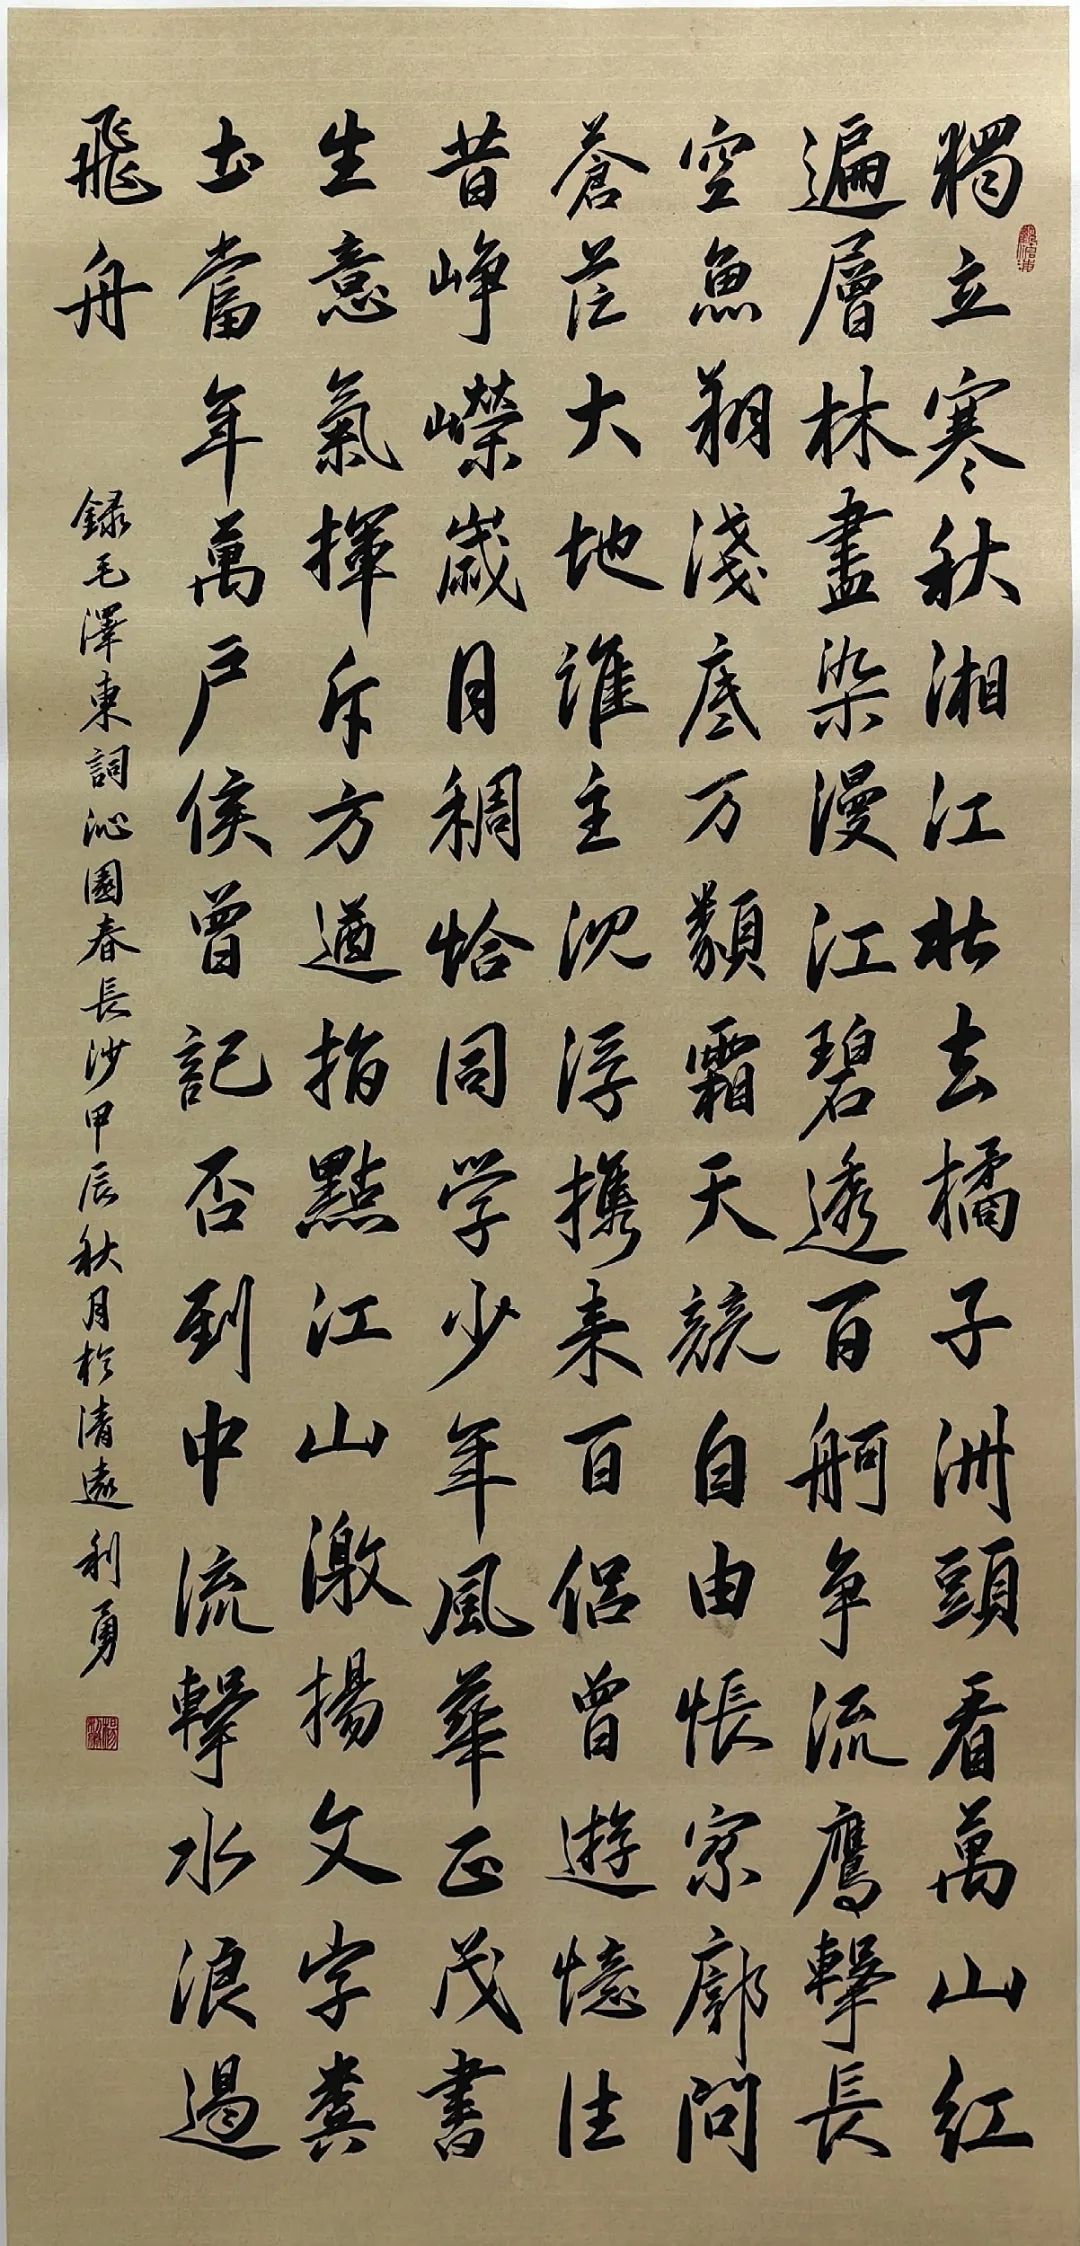 獨立寒秋湘江北去橘子洲頭看萬山紅
遍層林盡染漫江碧透百舸争流鷹擊長
空魚翔淺底万類霜天競自由悵寥廓問
蒼茫大地誰主沉浮攜来百侣曾遊憶往
昔峥嶸歲月稠恰同学少年風華正茂書
生意氣揮斥方遒指點江山激揚文字糞
土當年萬户侯曾記否到中流擊水浪遏
飛舟
録毛澤東詞沁園春長沙甲辰秋月於清遠利勇